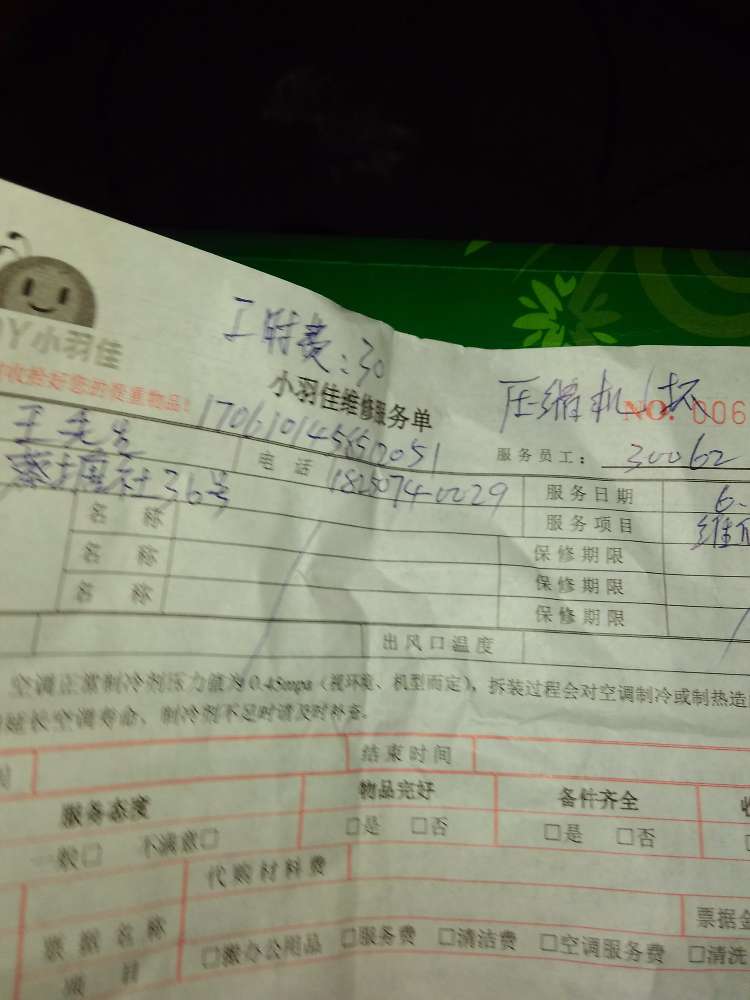 工时费：30
小羽佳
压缩机坏
时收拾好您的贵重物品！
小羽佳维修服务单
NO. 006
王先生
电话
服务员工： 30062
社36号
服务日期 6.
名称
服务项目 维
名称
保修期限
名称
保修期限
保修期限
出风口温度
空调正常制冷剂压力值为0.45mpa（视环境、机型而定），拆装过程会对空调制冷或制热造
延长空调寿命、制冷剂不足时请及时补备。
间
结束时间
服务态度 物品完好 备件齐全 收
一般□ 不满意□ □是 □否 □是 □否
代购材料费
票据名称
票据金
项目
□搬办公用品 □服务费 □清洁费 □空调服务费 □清洗